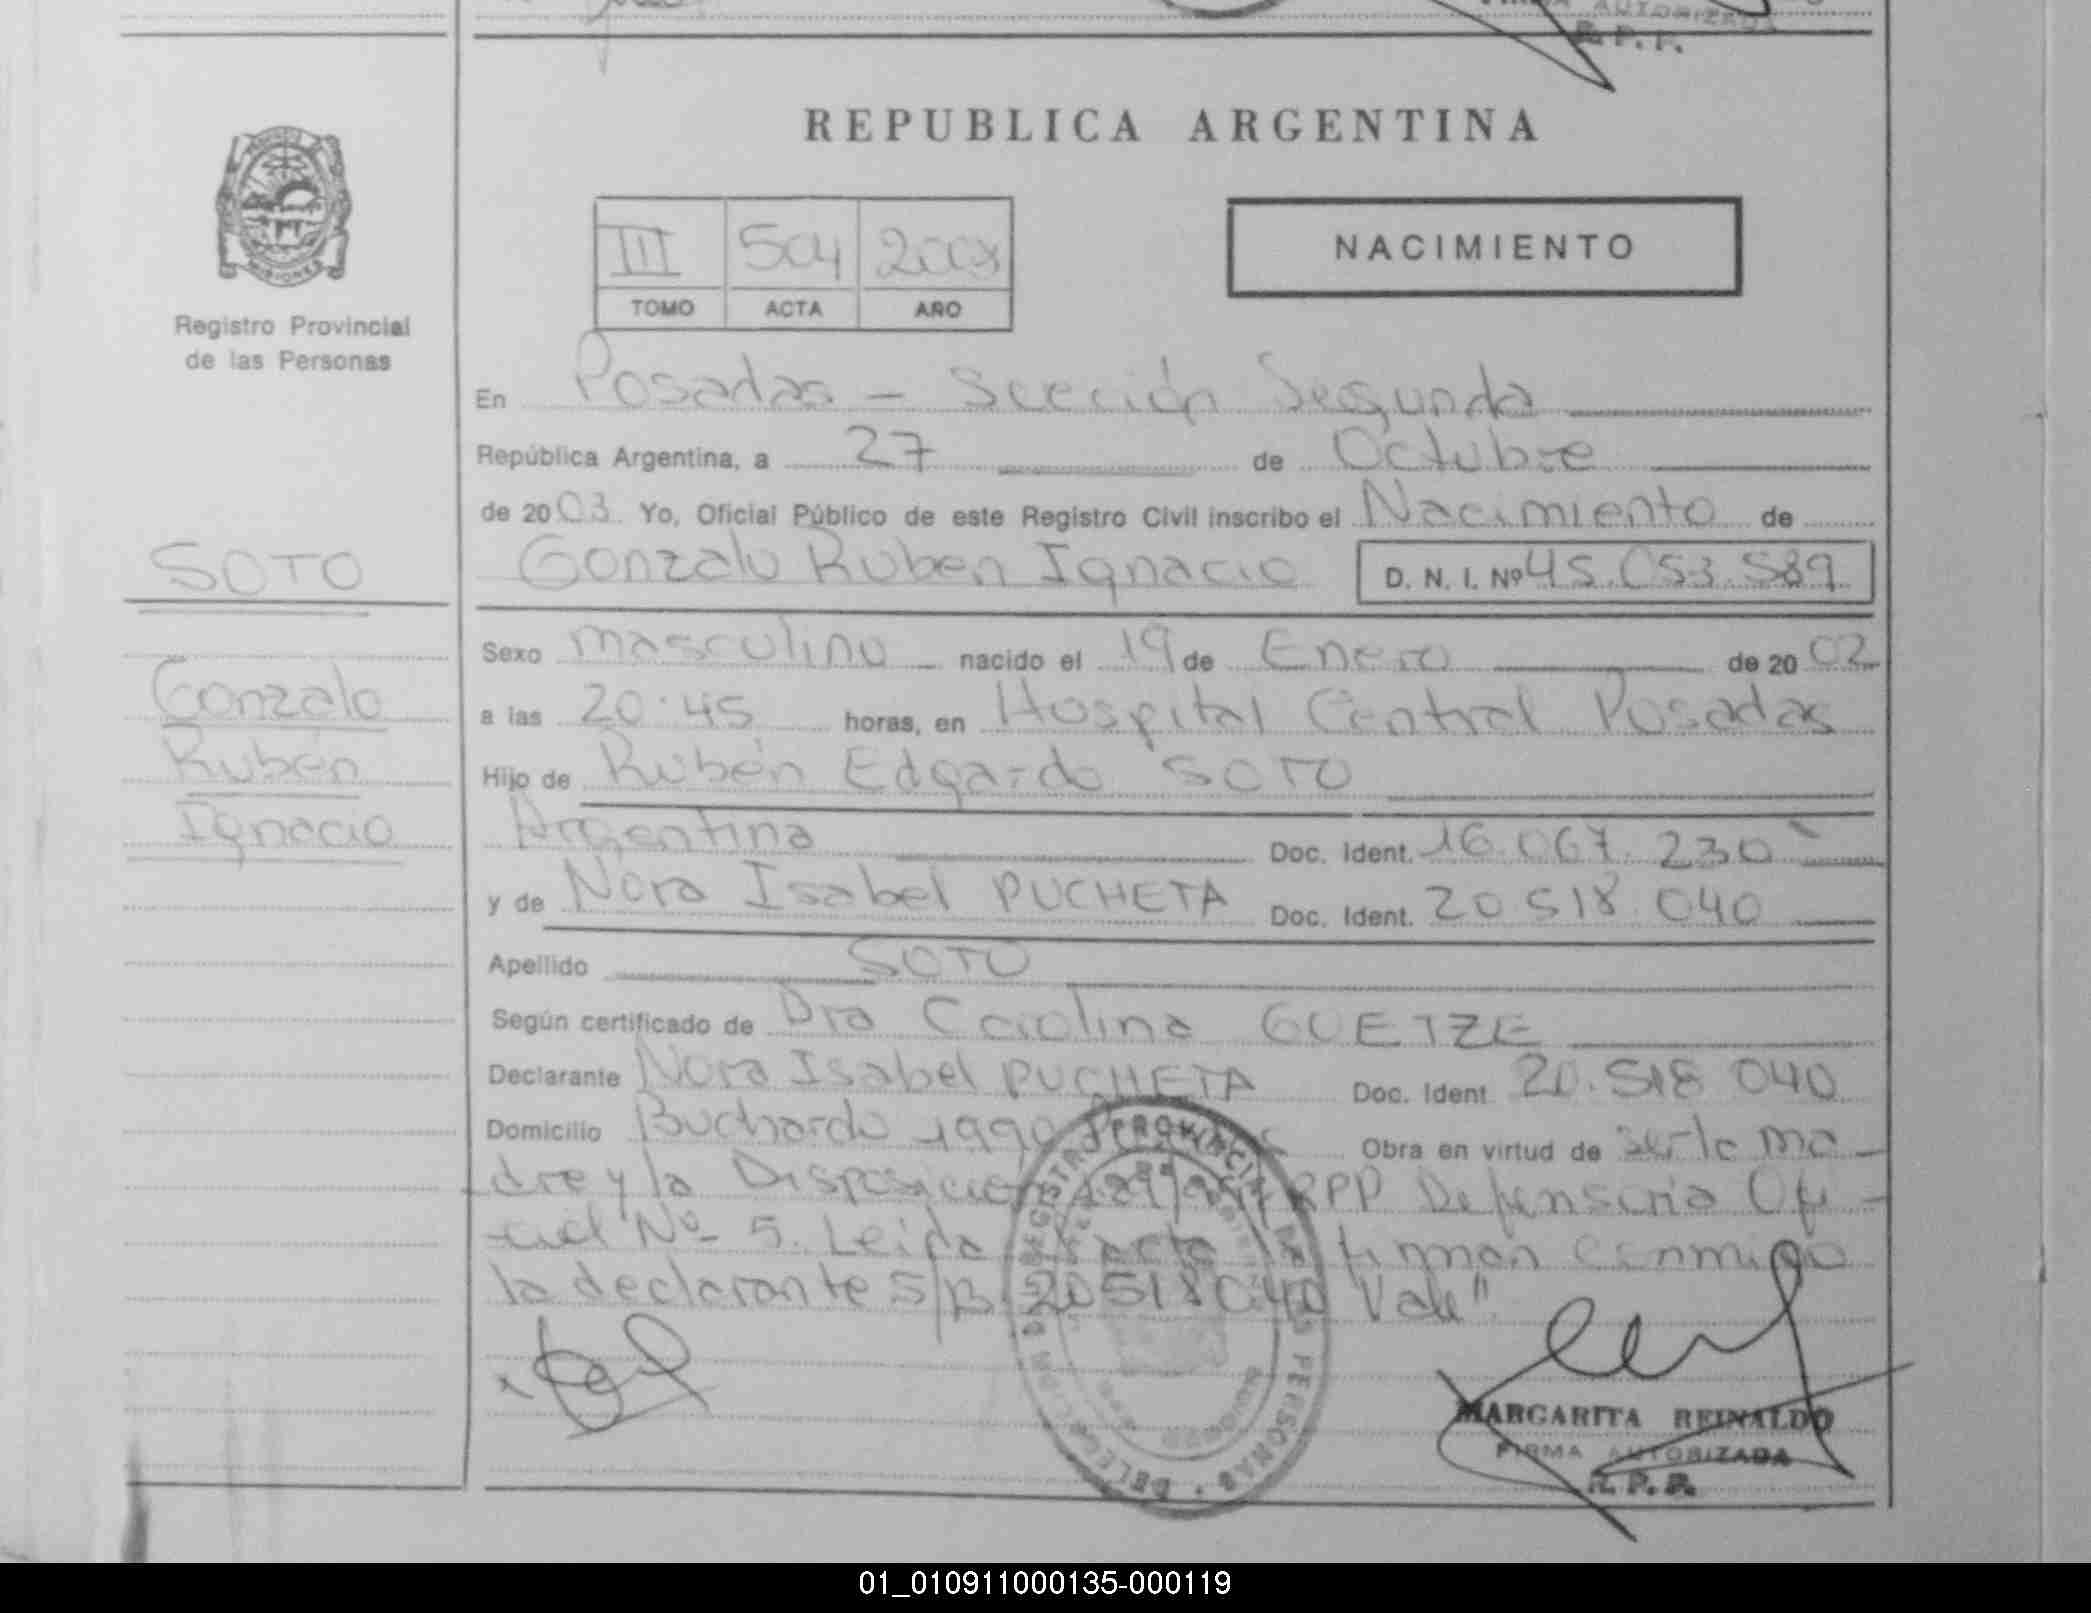 AUTORIZADA
R. P. P.
REPUBLICA ARGENTINA
MISIONES
Registro Provincial
de las Personas
III 504 2003
TOMO ACTA AÑO
NACIMIENTO
En Posadas - Sección Segunda
República Argentina, a 27 de Octubre
de 2003 Yo, Oficial Público de este Registro Civil inscribo el Nacimiento de
SOTO
Gonzalo Ruben Ignacio D. N. I. Nº 45.053.589
Sexo masculino nacido el 19 de Enero de 2002
Gonzalo
Rubén
Ignacio
a las 20:45 horas, en Hospital Central Posadas
Hijo de Rubén Edgardo SOTO
Argentina Doc. Ident. 16.067.230
y de Nora Isabel PUCHETA Doc. Ident. 20 518.040
Apellido SOTO
Según certificado de Dra Carolina GOETZE
Declarante Nora Isabel PUCHETA Doc. Ident 20.518 040
Domicilio Buchardo 1990 Obra en virtud de ser la ma-
dre y la Disposición RPP Defensoria Ofi-
cial Nº 5. Leida acta la firman conmigo
la declarante S/B 20518040 Vale"
REGISTRO PROVINCIAL DE LAS PERSONAS
MARGARITA REINALDO
FIRMA AUTORIZADA
R. P. P.
01_010911000135-000119